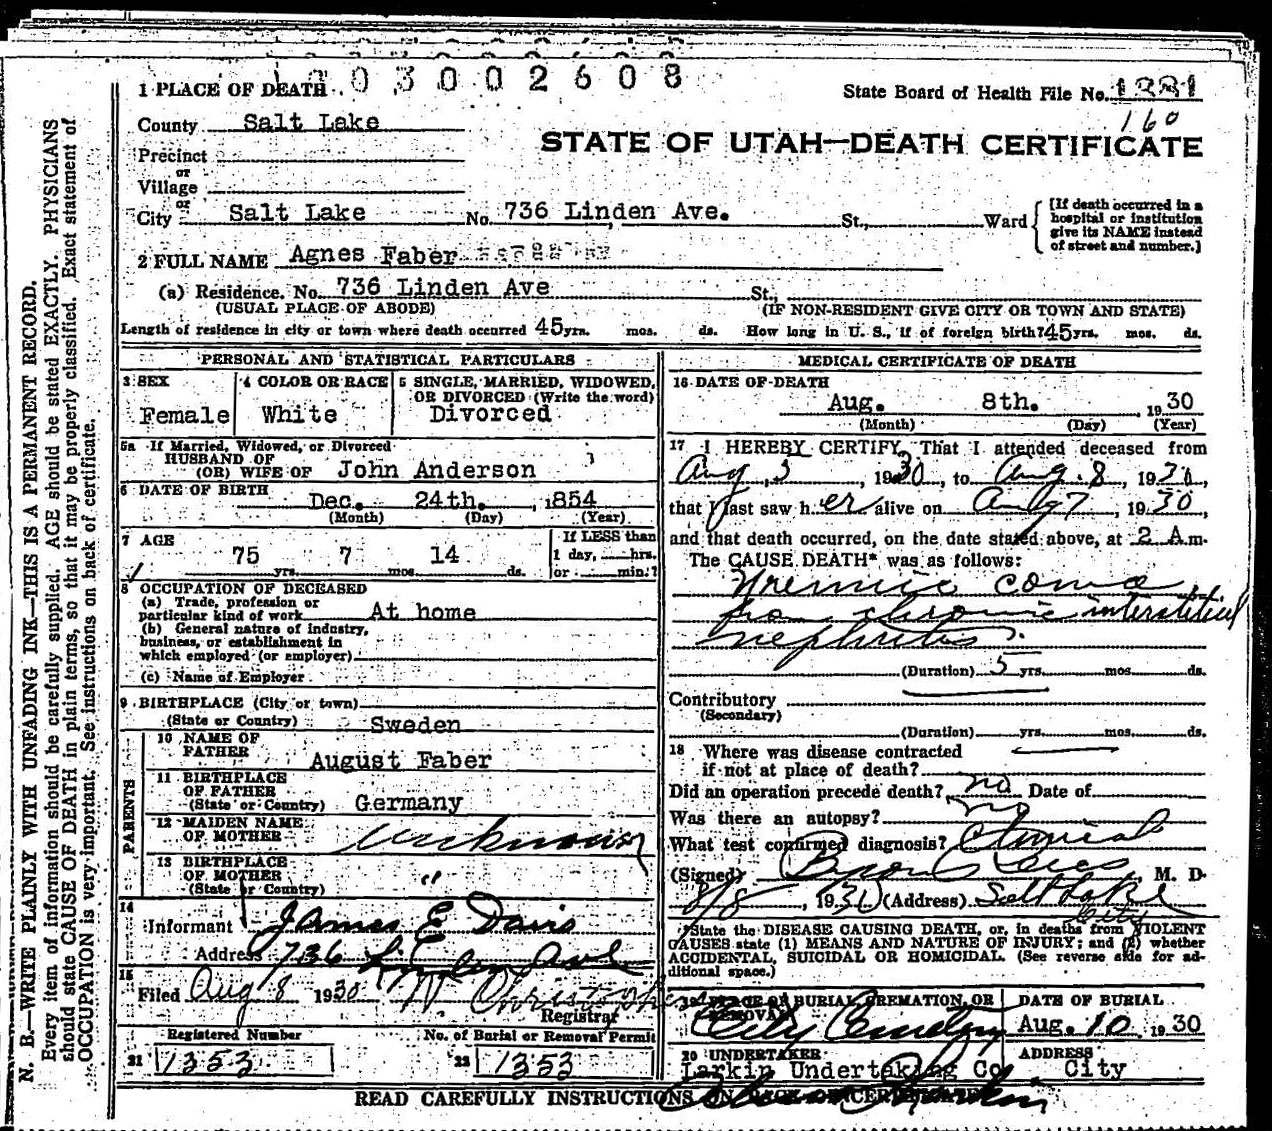 1003002608
1 PLACE OF DEATH
State Board of Health File No. 1331
160
County Salt Lake
STATE OF UTAH—DEATH CERTIFICATE
Precinct
or
Village
or
City Salt Lake No. 736 Linden Ave. St., Ward
[If death occurred in a
hospital or institution
give its NAME instead
of street and number.]
2 FULL NAME Agnes Faber
(a) Residence. No. 736 Linden Ave St.,
(USUAL PLACE OF ABODE) (IF NON-RESIDENT GIVE CITY OR TOWN AND STATE)
Length of residence in city or town where death occurred 45 yrs. mos. ds. How long in U. S., if of foreign birth? 45 yrs. mos. ds.
PERSONAL AND STATISTICAL PARTICULARS
3 SEX 4 COLOR OR RACE 5 SINGLE, MARRIED, WIDOWED,
OR DIVORCED (Write the word)
Female White Divorced
5a If Married, Widowed, or Divorced
HUSBAND OF
(OR) WIFE OF John Anderson
6 DATE OF BIRTH
Dec. 24th. , 1854
(Month) (Day) (Year)
7 AGE
If LESS than
75 7 14 1 day, hrs.
yrs. mos. ds. or min.?
8 OCCUPATION OF DECEASED
(a) Trade, profession or
particular kind of work At home
(b) General nature of industry,
business, or establishment in
which employed (or employer)
(c) Name of Employer
9 BIRTHPLACE (City or town)
(State or Country) Sweden
PARENTS
10 NAME OF
FATHER
August Faber
11 BIRTHPLACE
OF FATHER
(State or Country) Germany
12 MAIDEN NAME
OF MOTHER unknown
13 BIRTHPLACE
OF MOTHER "
(State or Country)
14
Informant James E Davis
Address 736 Linden Ave
15
Filed Aug 8 1930 W Christopher
Registrar
Registered Number No. of Burial or Removal Permit
21 1353 22 1353
MEDICAL CERTIFICATE OF DEATH
16 DATE OF DEATH
Aug. 8th. , 1930
(Month) (Day) (Year)
17 I HEREBY CERTIFY, That I attended deceased from
Aug 3, 1930, to Aug. 8, 1930,
that I last saw her alive on Aug 7, 1930,
and that death occurred, on the date stated above, at 2 A m.
The CAUSE DEATH* was as follows:
Uremic coma
from chronic interstitial
nephritis.
(Duration) 5 yrs. mos. ds.
Contributory
(Secondary)
(Duration) yrs. mos. ds.
18 Where was disease contracted
if not at place of death?
Did an operation precede death? no Date of
Was there an autopsy? no
What test confirmed diagnosis? Clinical
(Signed) Byron Rees, M. D.
8/8, 1930 (Address) Salt Lake
City
*State the DISEASE CAUSING DEATH, or, in deaths from VIOLENT
CAUSES state (1) MEANS AND NATURE OF INJURY; and (2) whether
ACCIDENTAL, SUICIDAL OR HOMICIDAL. (See reverse side for ad-
ditional space.)
19 PLACE OF BURIAL, CREMATION, OR
REMOVAL
City Cemetery
DATE OF BURIAL
Aug. 10 1930
20 UNDERTAKER
Larkin Undertaking Co
ADDRESS
City
READ CAREFULLY INSTRUCTIONS ON BACK OF CERTIFICATE
N. B.—WRITE PLAINLY WITH UNFADING INK—THIS IS A PERMANENT RECORD.
Every item of information should be carefully supplied. AGE should be stated EXACTLY. PHYSICIANS
should state CAUSE OF DEATH in plain terms, so that it may be properly classified. Exact statement of
OCCUPATION is very important. See instructions on back of certificate.